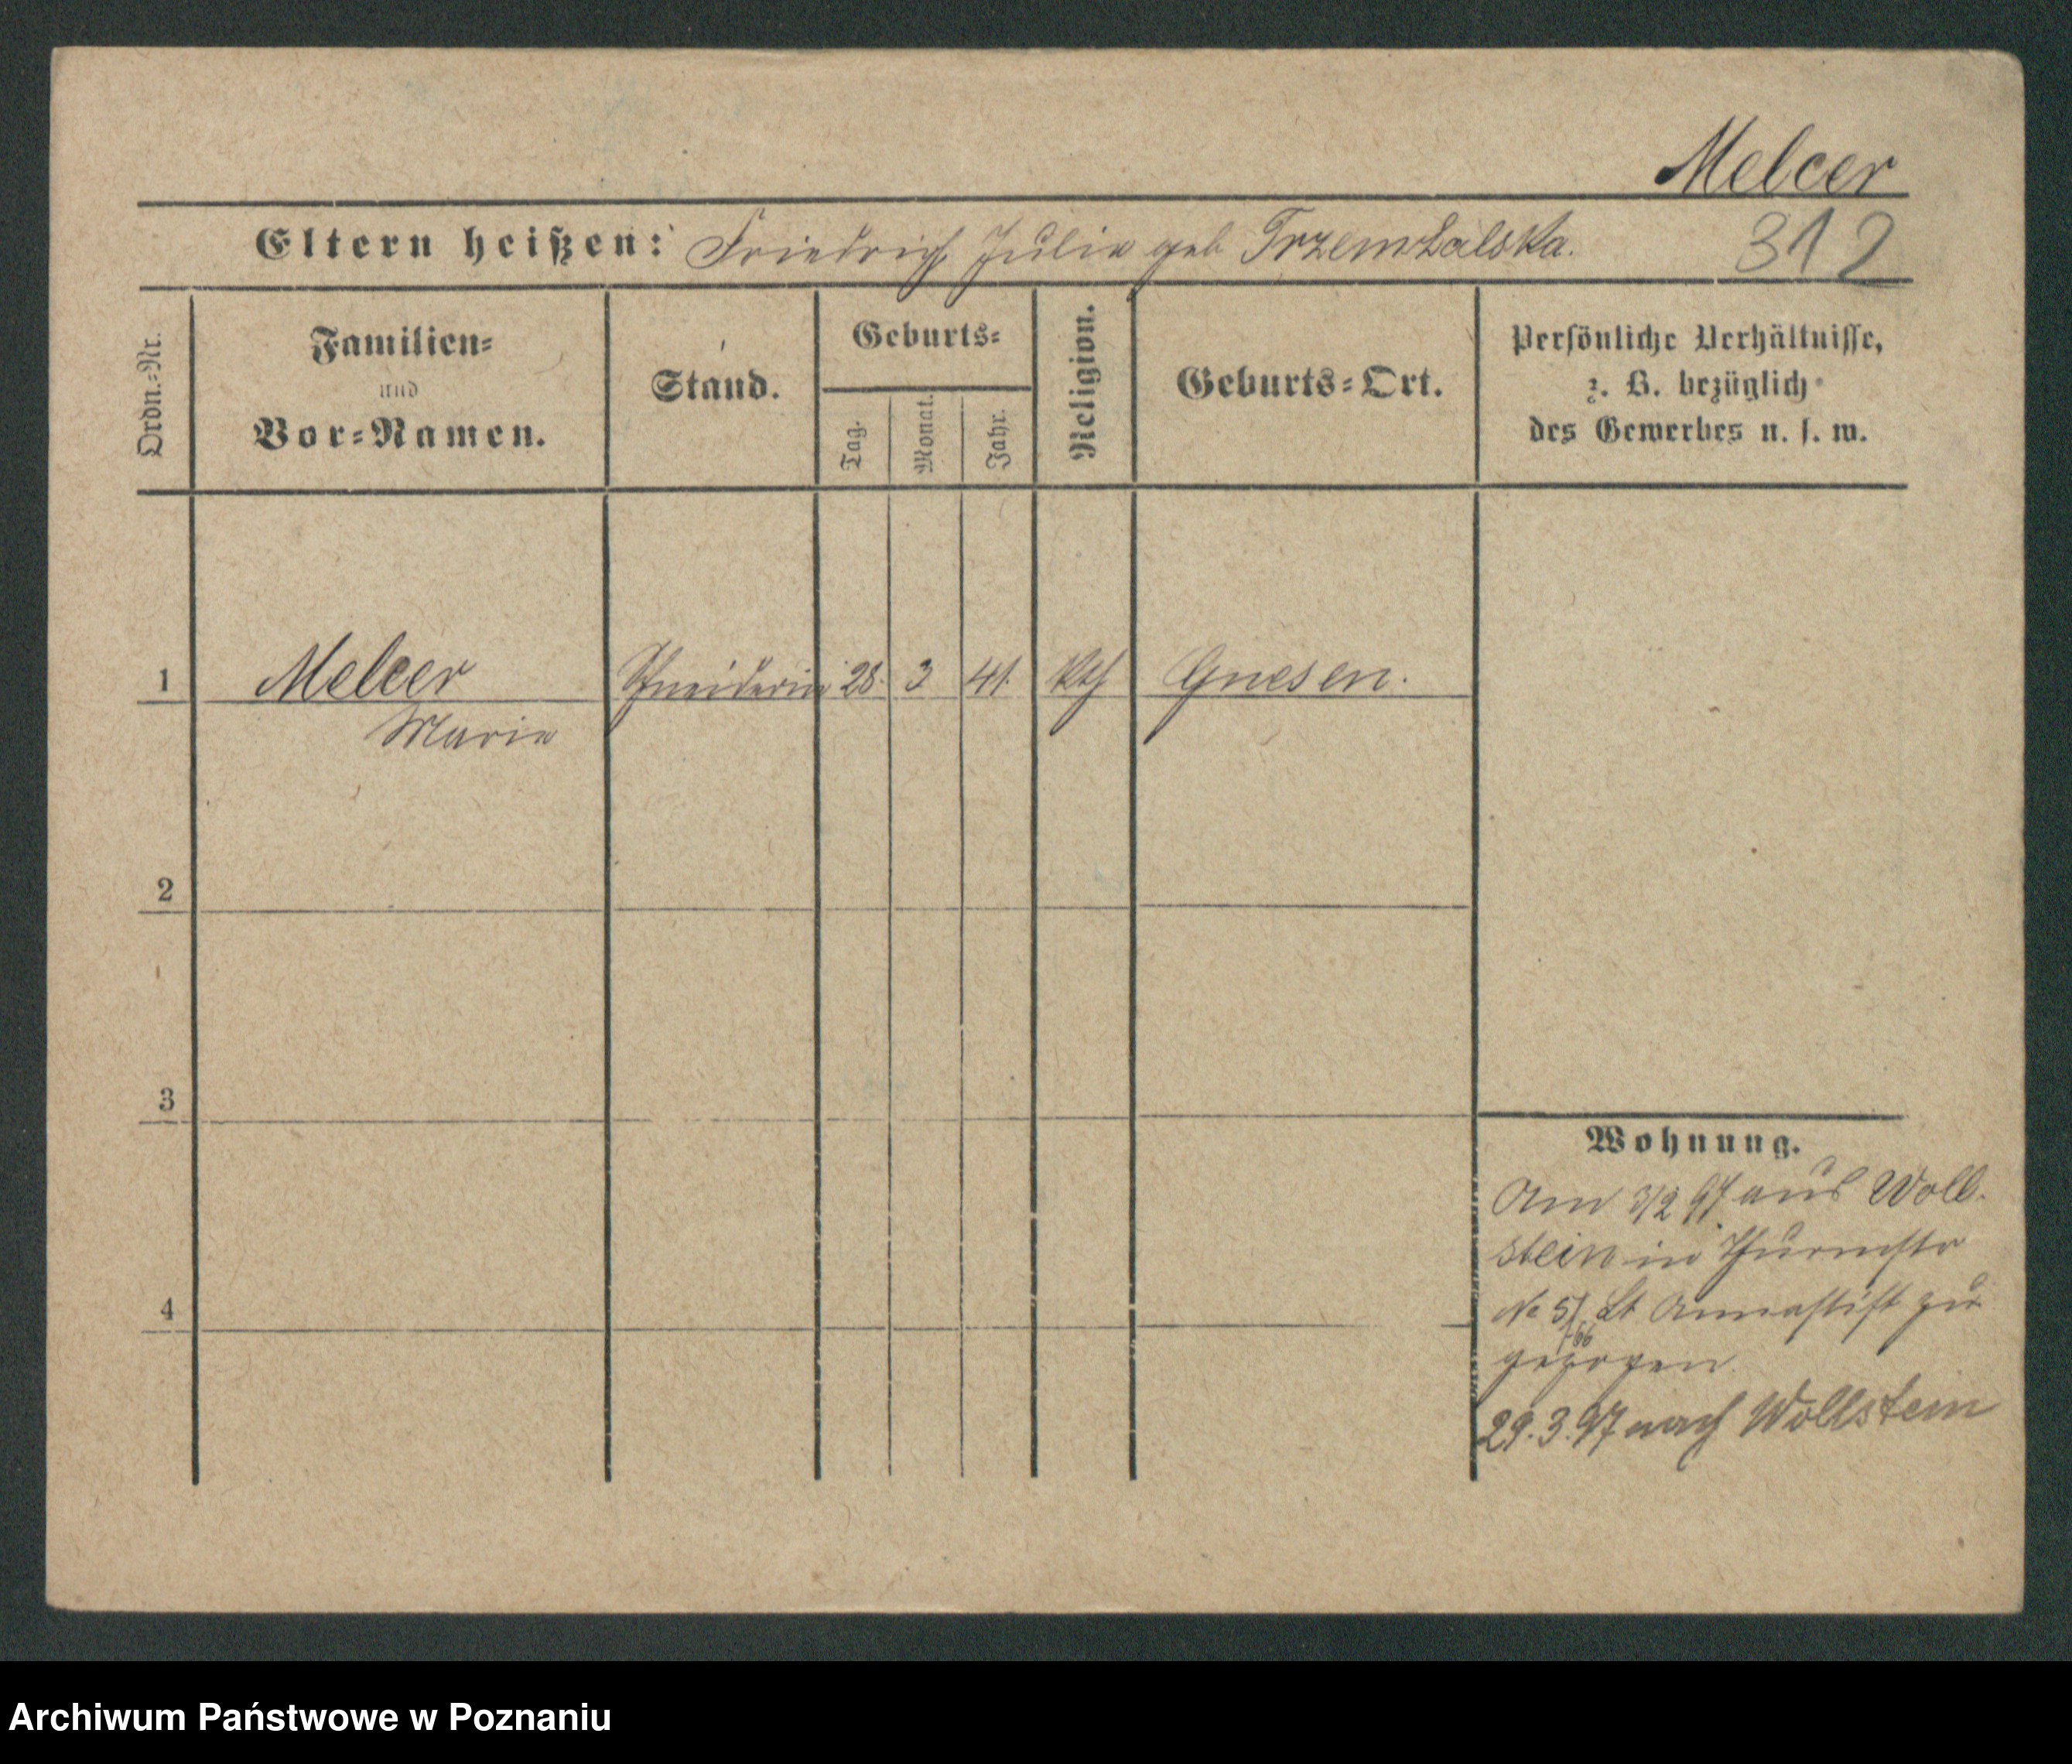 Melcer
Eltern heißen: Friedrich, Julie geb Trzemżalska.
312
Ordn.-Nr.
Familien-
und
Vor-Namen.
Stand.
Geburts-
Tag.
Monat.
Jahr.
Religion.
Geburts-Ort.
Persönliche Verhältnisse,
z. B. bezüglich
des Gewerbes u. s. w.
1 Melcer Schneiderin 28. 3 41. kth Gnesen.
Marie
2
3
4
Wohnung.
Am 3/2 97 aus Woll-
stein in Thurmstr
No 5/ St Annastift zu
66
gezogen.
29.3.97 nach Wollstein
Archiwum Państwowe w Poznaniu